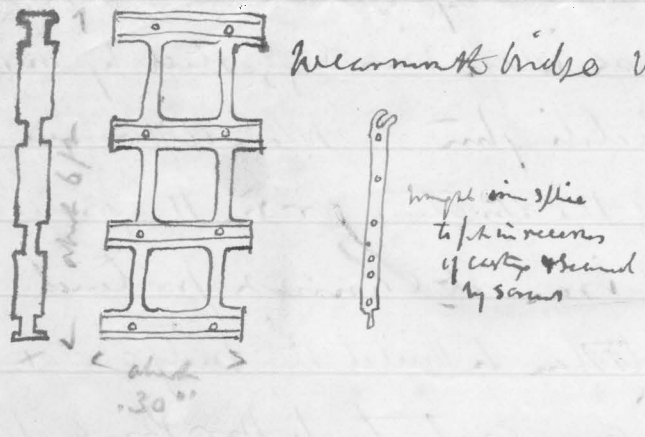 Wearmouth bridge
about 6 ft
wrought iron splice
to fit in recesses
of castings & secured
by screws
about
30"